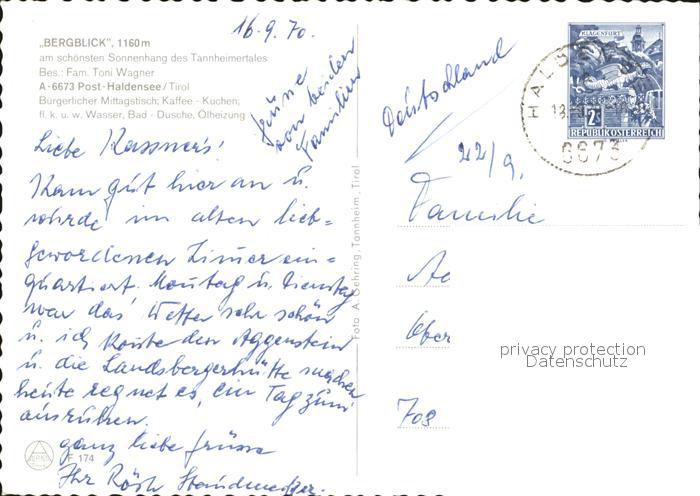 16.9.70.
„BERGBLICK", 1160 m
am schönsten Sonnenhang des Tannheimertales
Bes.: Fam. Toni Wagner
A-6673 Post-Haldensee/Tirol
Bürgerlicher Mittagstisch; Kaffee - Kuchen;
fl. k. u. w. Wasser, Bad - Dusche, Ölheizung
Grüsse
von beiden
Familien
Liebe Kassners!
Kam gut hier an u.
wurde im alten lieb=
gewordenen Zimer ein=
quartiert. Montag u. Dienstag
war das Wetter sehr schön
u. ich konte den Aggenstein
u. die Landsbergerhütte machen
heute regnet es, ein Tag zum
ausruhen.
ganz liebe Grüsse
Ihr
F 174
Foto A. Gehring, Tannheim, Tirol
Deutschland
22/9.
Familie
Ae
Ober
708
KLAGENFURT
2S
REPUBLIK ÖSTERREICH
6673
privacy protection
Datenschutz